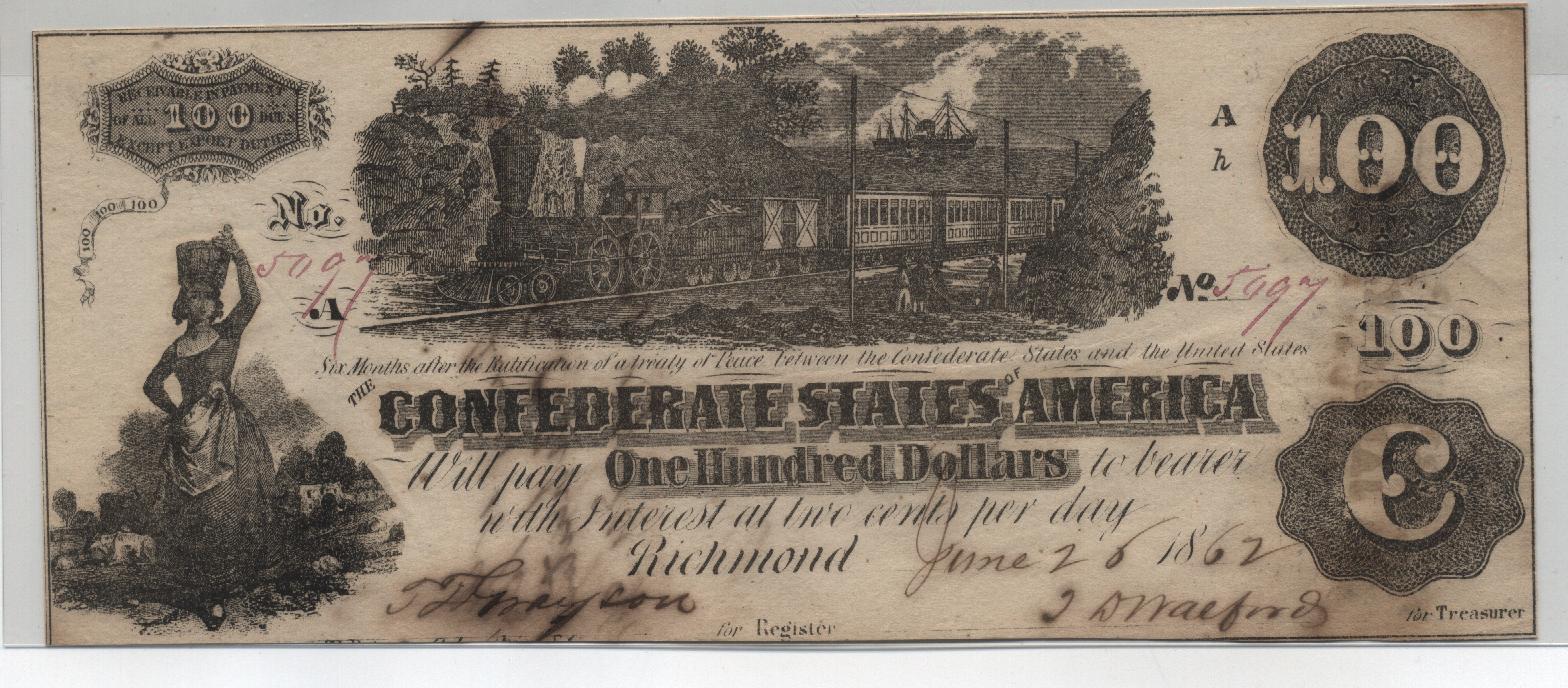 RECEIVABLE IN PAYMENT
OF ALL 100 DUES
EXCEPT EXPORT DUTIES
100 100 100
No.
5097
A
A
h
100
No 5097
100
Six Months after the Ratification of a treaty of Peace between the Confederate States and the United States
THE CONFEDERATE STATES OF AMERICA
Will pay One Hundred Dollars to bearer
with Interest at two cents per day
Richmond June 26 1862
C
for Register
for Treasurer